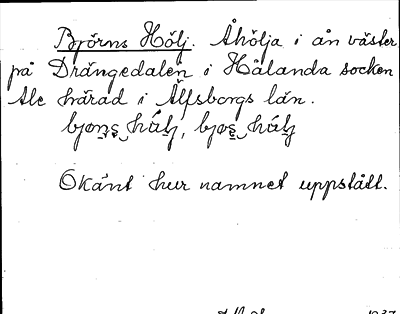 Björns Hölj. Åhölja i ån väster
på Drängedalen i Hålanda socken
Ale härad i Älfsborgs län.
Okänt hur namnet uppstått.